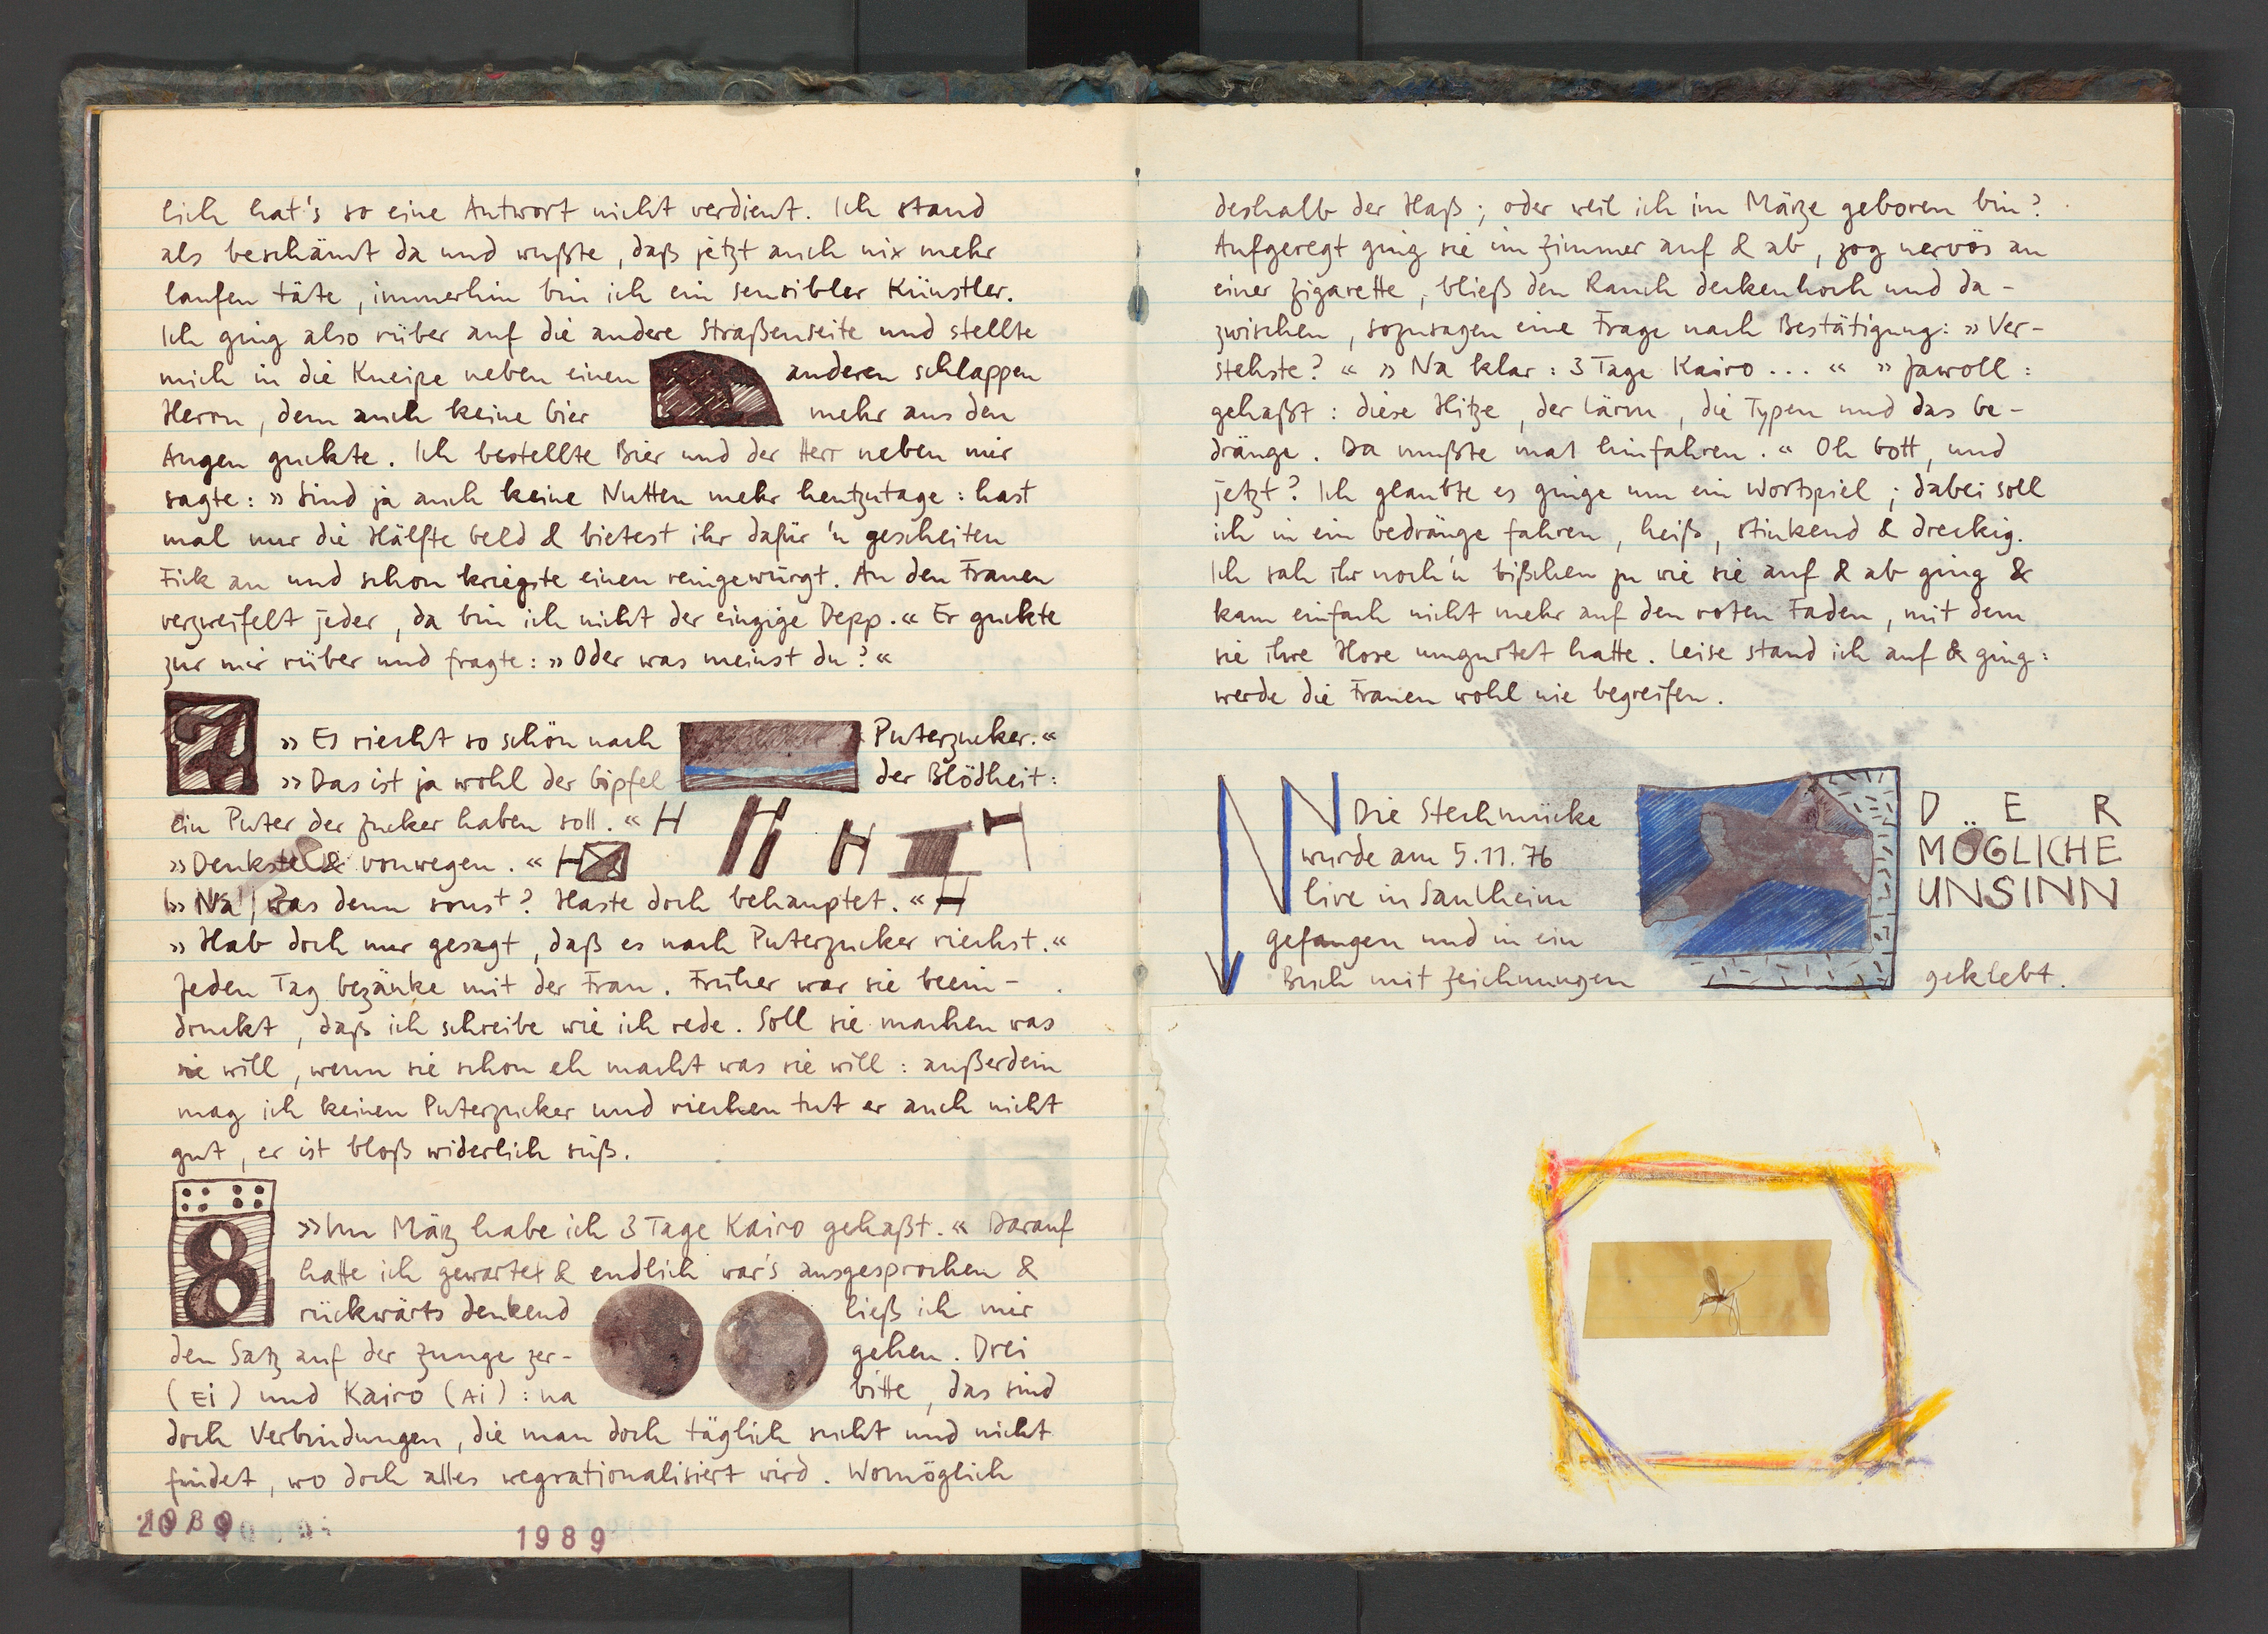 lich hat's so eine Antwort nicht verdient. Ich stand
als beschämt da und wußte, daß jetzt auch nix mehr
laufen täte, immerhin bin ich ein sensibler Künstler.
Ich ging also rüber auf die andere Straßenseite und stellte
mich in die Kneipe neben einen anderen schlappen
Herrn, dem auch keine Gier mehr aus den
Augen guckte. Ich bestellte Bier und der Herr neben mir
sagte: »Sind ja auch keine Nutten mehr heutzutage: hast
mal nur die Hälfte Geld & bietest ihr dafür 'n gescheiten
Fick an und schon kriegste einen reingewürgt. An den Frauen
verzweifelt jeder, da bin ich nicht der einzige Depp.« Er guckte
zur mir rüber und fragte: »Oder was meinst du?«
7
»Es riecht so schön nach Puterzucker.«
»Das ist ja wohl der Gipfel der Blödheit:
ein Puter der Zucker haben soll.« H
»Denkste & vonwegen.« H
»Na, was denn sonst? Haste doch behauptet.« H
»Hab doch nur gesagt, daß es nach Puterzucker riechst.«
Jeden Tag Gezänke mit der Frau. Früher war sie beein-
druckt, daß ich schreibe wie ich rede. Soll sie machen was
sie will, wenn sie schon eh macht was sie will: außerdem
mag ich keinen Puterzucker und riechen tut er auch nicht
gut, er ist bloß widerlich süß.
8
»Im März habe ich 3 Tage Kairo gehaßt.« Darauf
hatte ich gewartet & endlich war's ausgesprochen &
rückwärts denkend ließ ich mir
den Satz auf der Zunge zer- gehen. Drei
(Ei) und Kairo (Ai): na bitte, das sind
doch Verbindungen, die man doch täglich sucht und nicht
findet, wo doch alles wegrationalisiert wird. Womöglich
1989
deshalb der Haß; oder weil ich im Märze geboren bin?
Aufgeregt ging sie im Zimmer auf & ab, zog nervös an
einer Zigarette, bließ den Rauch deckenhoch und da-
zwischen, sozusagen eine Frage nach Bestätigung: »Ver-
stehste?« »Na klar: 3 Tage Kairo...« »Jawoll:
gehaßt: diese Hitze, der Lärm, die Typen und das Ge-
dränge. Da mußte mal hinfahren.« Oh Gott, und
jetzt? Ich glaubte es ginge um ein Wortspiel; dabei soll
ich in ein Gedränge fahren, heiß, stinkend & dreckig.
Ich sah ihr noch'n bißchen zu wie sie auf & ab ging &
kam einfach nicht mehr auf den roten Faden, mit dem
sie ihre Hose umgurtet hatte. Leise stand ich auf & ging:
werde die Frauen wohl nie begreifen.
Die Stechmücke
wurde am 5.11.76
live in Saulheim
gefangen und in ein
Buch mit Zeichnungen geklebt.
DER
MÖGLICHE
UNSINN